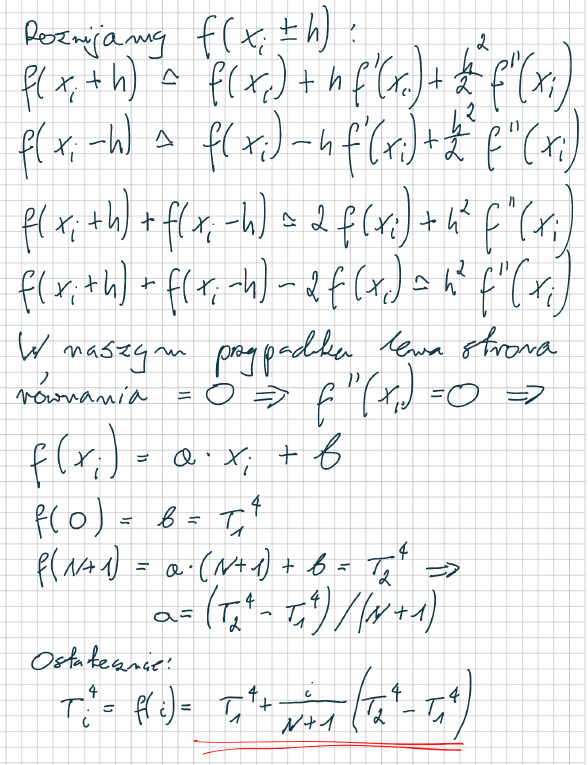 Rozwijamy f(x_i ± h) :
f(x_i + h) ≃ f(x_i) + h f'(x_i) + h²/2 f''(x_i)
f(x_i - h) ≃ f(x_i) - h f'(x_i) + h²/2 f''(x_i)
f(x_i + h) + f(x_i - h) ≃ 2 f(x_i) + h² f''(x_i)
f(x_i + h) + f(x_i - h) - 2 f(x_i) ≃ h² f''(x_i)
W naszym przypadku lewa strona
równania = 0 ⇒ f''(x_i) = 0 ⇒
f(x_i) = a · x_i + b
f(0) = b = T_1^4
f(N+1) = a · (N+1) + b = T_2^4 ⇒
a = (T_2^4 - T_1^4) / (N+1)
Ostatecznie:
T_i^4 = f(i) = T_1^4 + i/(N+1) (T_2^4 - T_1^4)